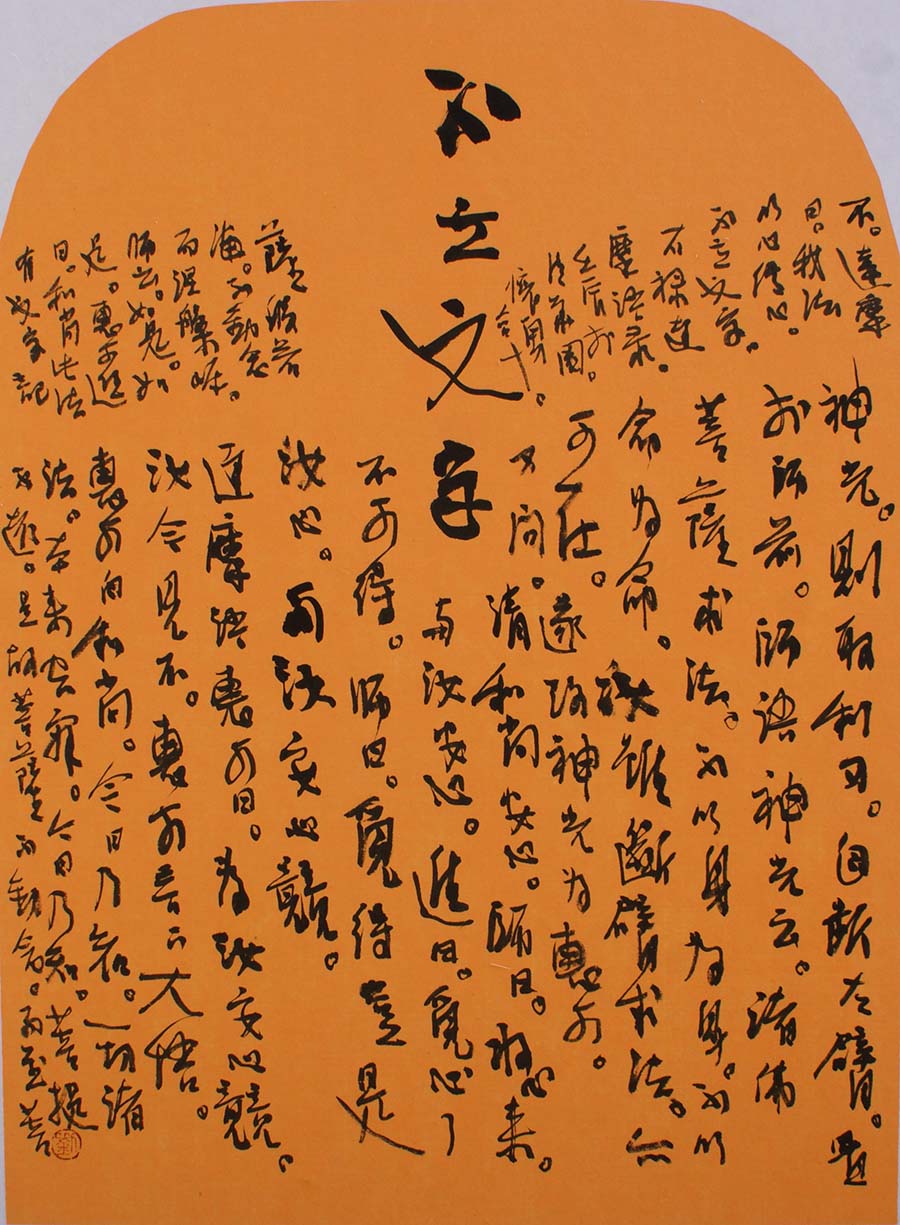 不立文字
神光。則取利刀。自断左臂。置
於師前。師語神光云。諸佛
菩薩求法。不以身為身。不以
命為命。汝雖斷臂求法。亦
可在。遂改神光為惠可。
又問。請和尚安心。師曰。将心来。
与汝安心。進曰。覓心了
不可得。師曰。覓得豈是
汝心。与汝安心竟。
達摩語惠可曰。為汝安心竟。
汝今見不。惠可言下大悟。
惠可白和尚。今日乃知。一切諸
法。本来空寂。今日乃知。菩提
不遠。是故菩薩不動念。而至菩
薩般若
海。不動念
而涅槃岸。
師云。如是。如
是。惠可進
曰。和尚此法
有文字記
不。達摩
曰。我法
以心傳心。
不立文字。
右禄達
摩語录。
壬辰於
清華園。